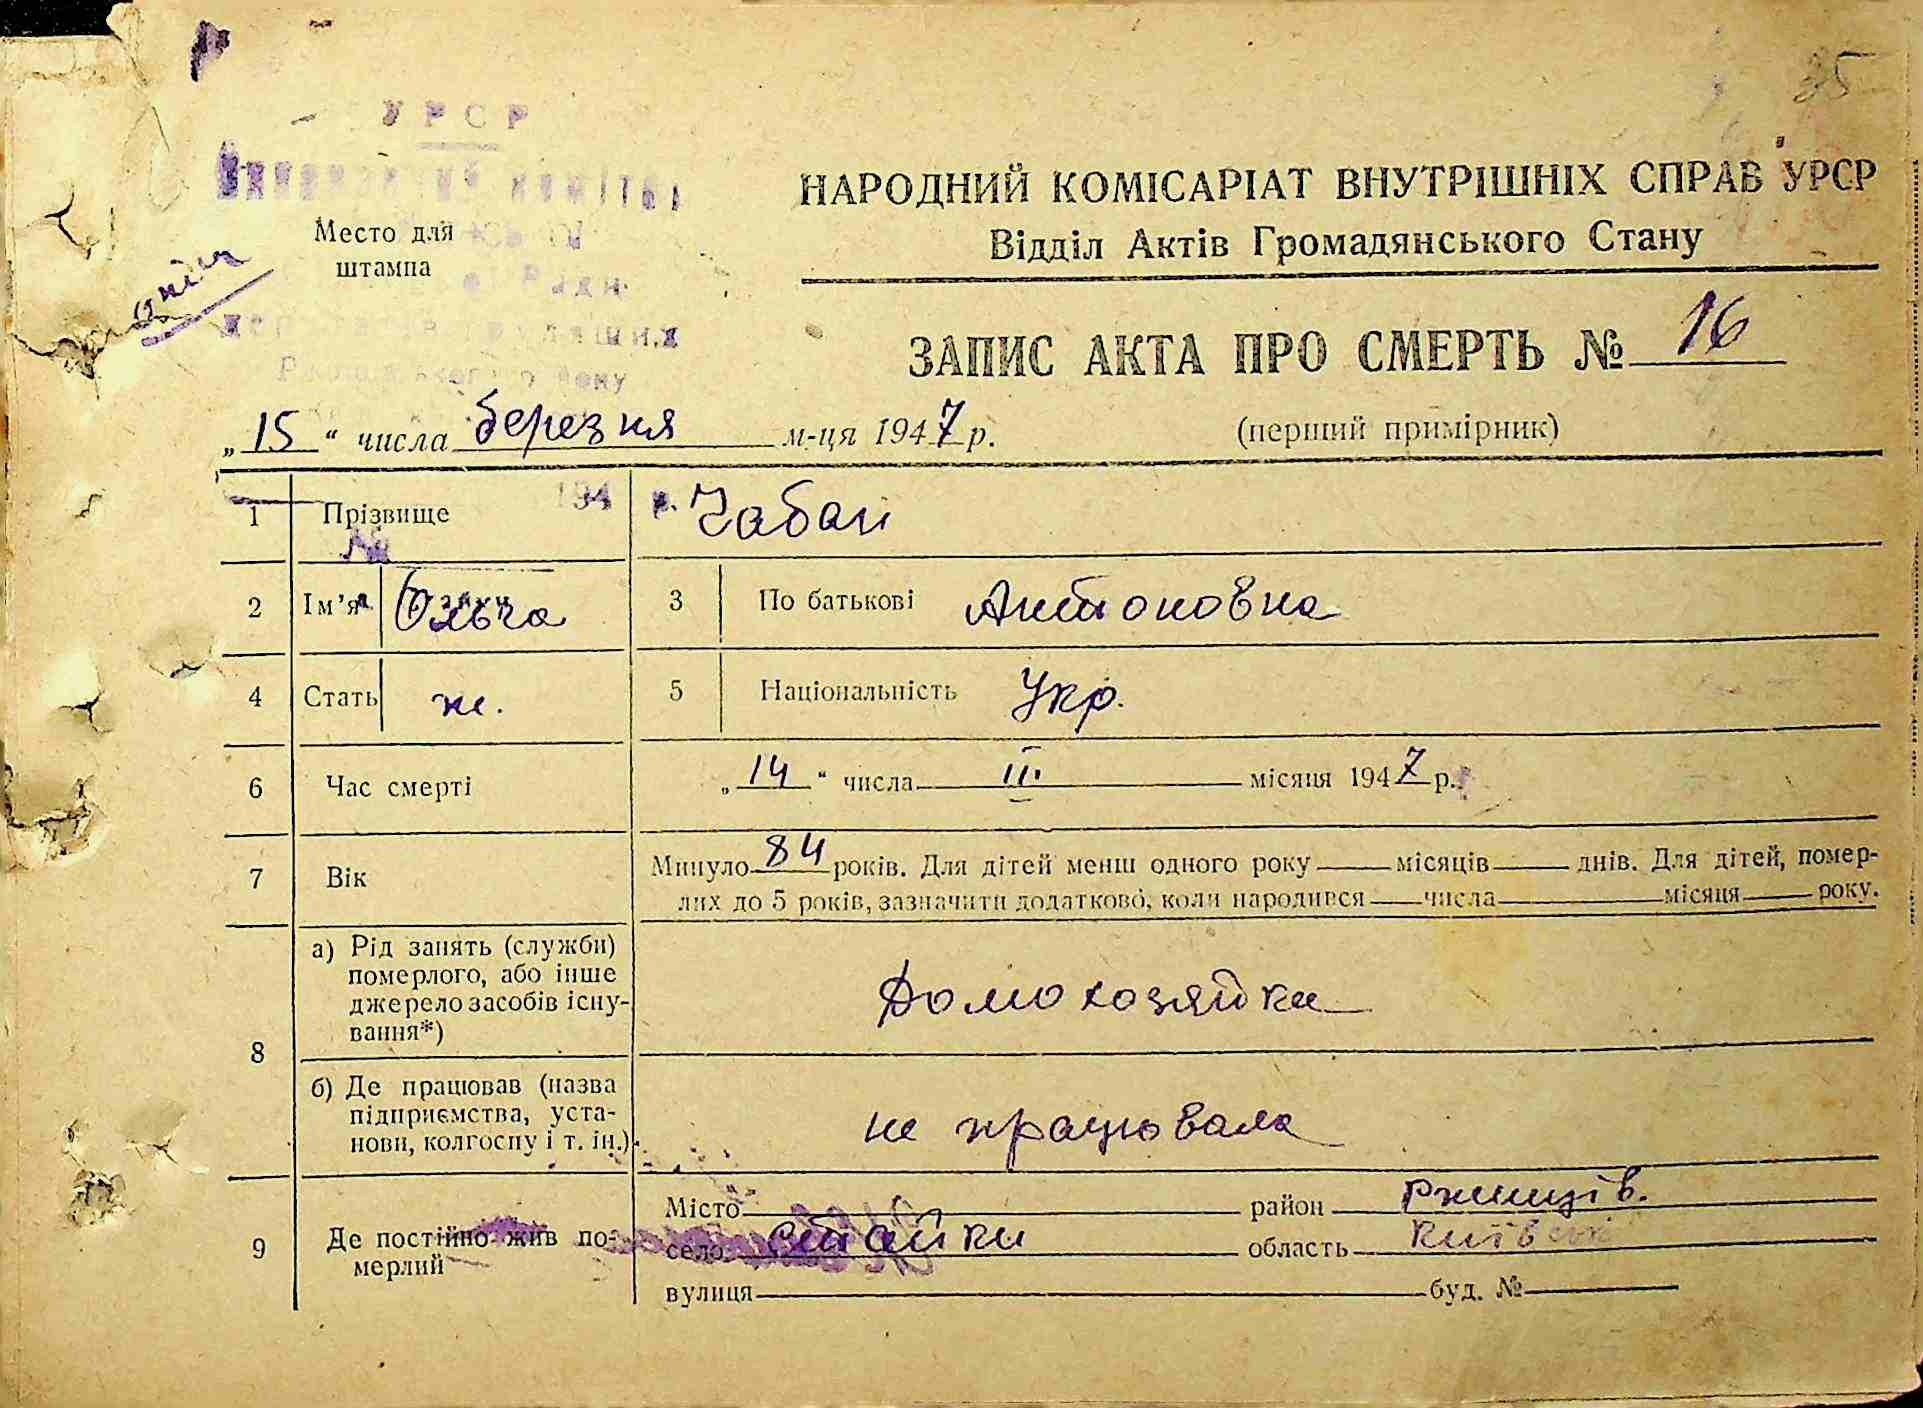 35
УРСР
Место для
штампа
НАРОДНИЙ КОМІСАРІАТ ВНУТРІШНІХ СПРАВ УРСР
Відділ Актів Громадянського Стану
ЗАПИС АКТА ПРО СМЕРТЬ № 16
„15“ числа березня м-ця 1947 р.
(перший примірник)
1 Прізвище Чабан
2 Ім’я Ольга 3 По батькові Антоновна
4 Стать ж. 5 Національність Укр.
6 Час смерті „14“ числа III місяця 1947 р.
7 Вік Минуло 84 років. Для дітей менш одного року місяців днів. Для дітей, помер-
лих до 5 років, зазначити додатково, коли народився числа місяця року.
8 а) Рід занять (служби)
померлого, або інше
джерело засобів існу-
вання*)
Домохозяйка
б) Де працював (назва
підприємства, уста-
нови, колгоспу і т. ін.)
не працювала
9 Де постійно жив по-
мерлий
Місто район Ржищів.
село Стайки область Київськ
вулиця буд. №